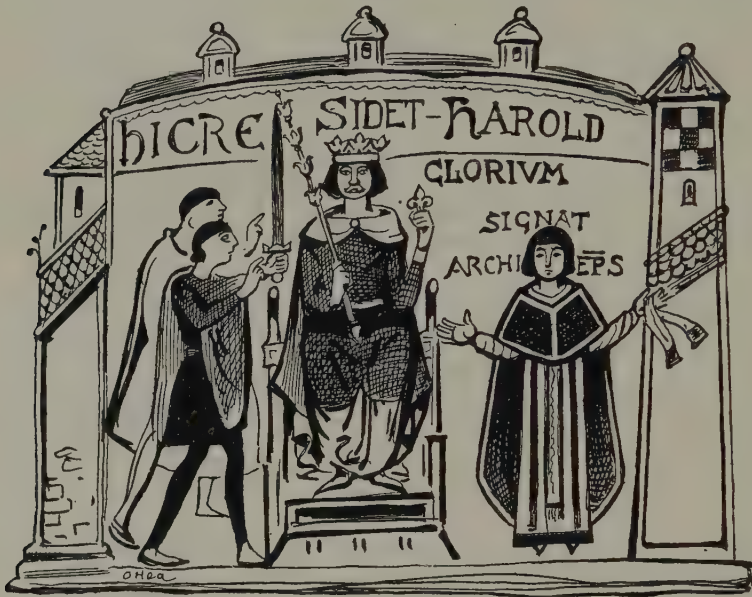 hICRE SIDET-hAROLD
GLORIVM
SIGNAT
ARCHI E͞P͞S
OHea